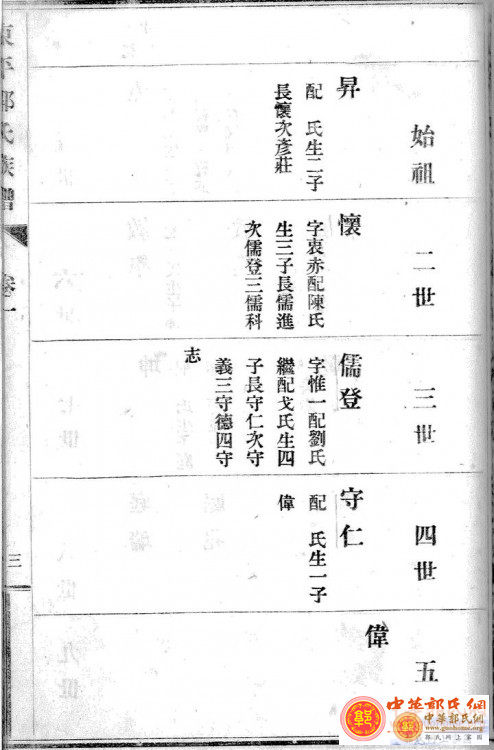 始祖
昇
配　氏生二子
長懷次彥莊
二世
懷
字衷赤配陳氏
生三子長儒進
次儒登三儒科
三世
儒登
字惟一配劉氏
繼配戈氏生四
子長守仁次守
義三守德四守
志
四世
守仁
配　氏生一子
偉
五
偉
東平郭氏族譜
卷一
三
中華郭氏網
中華郭氏網
郭氏网上家园